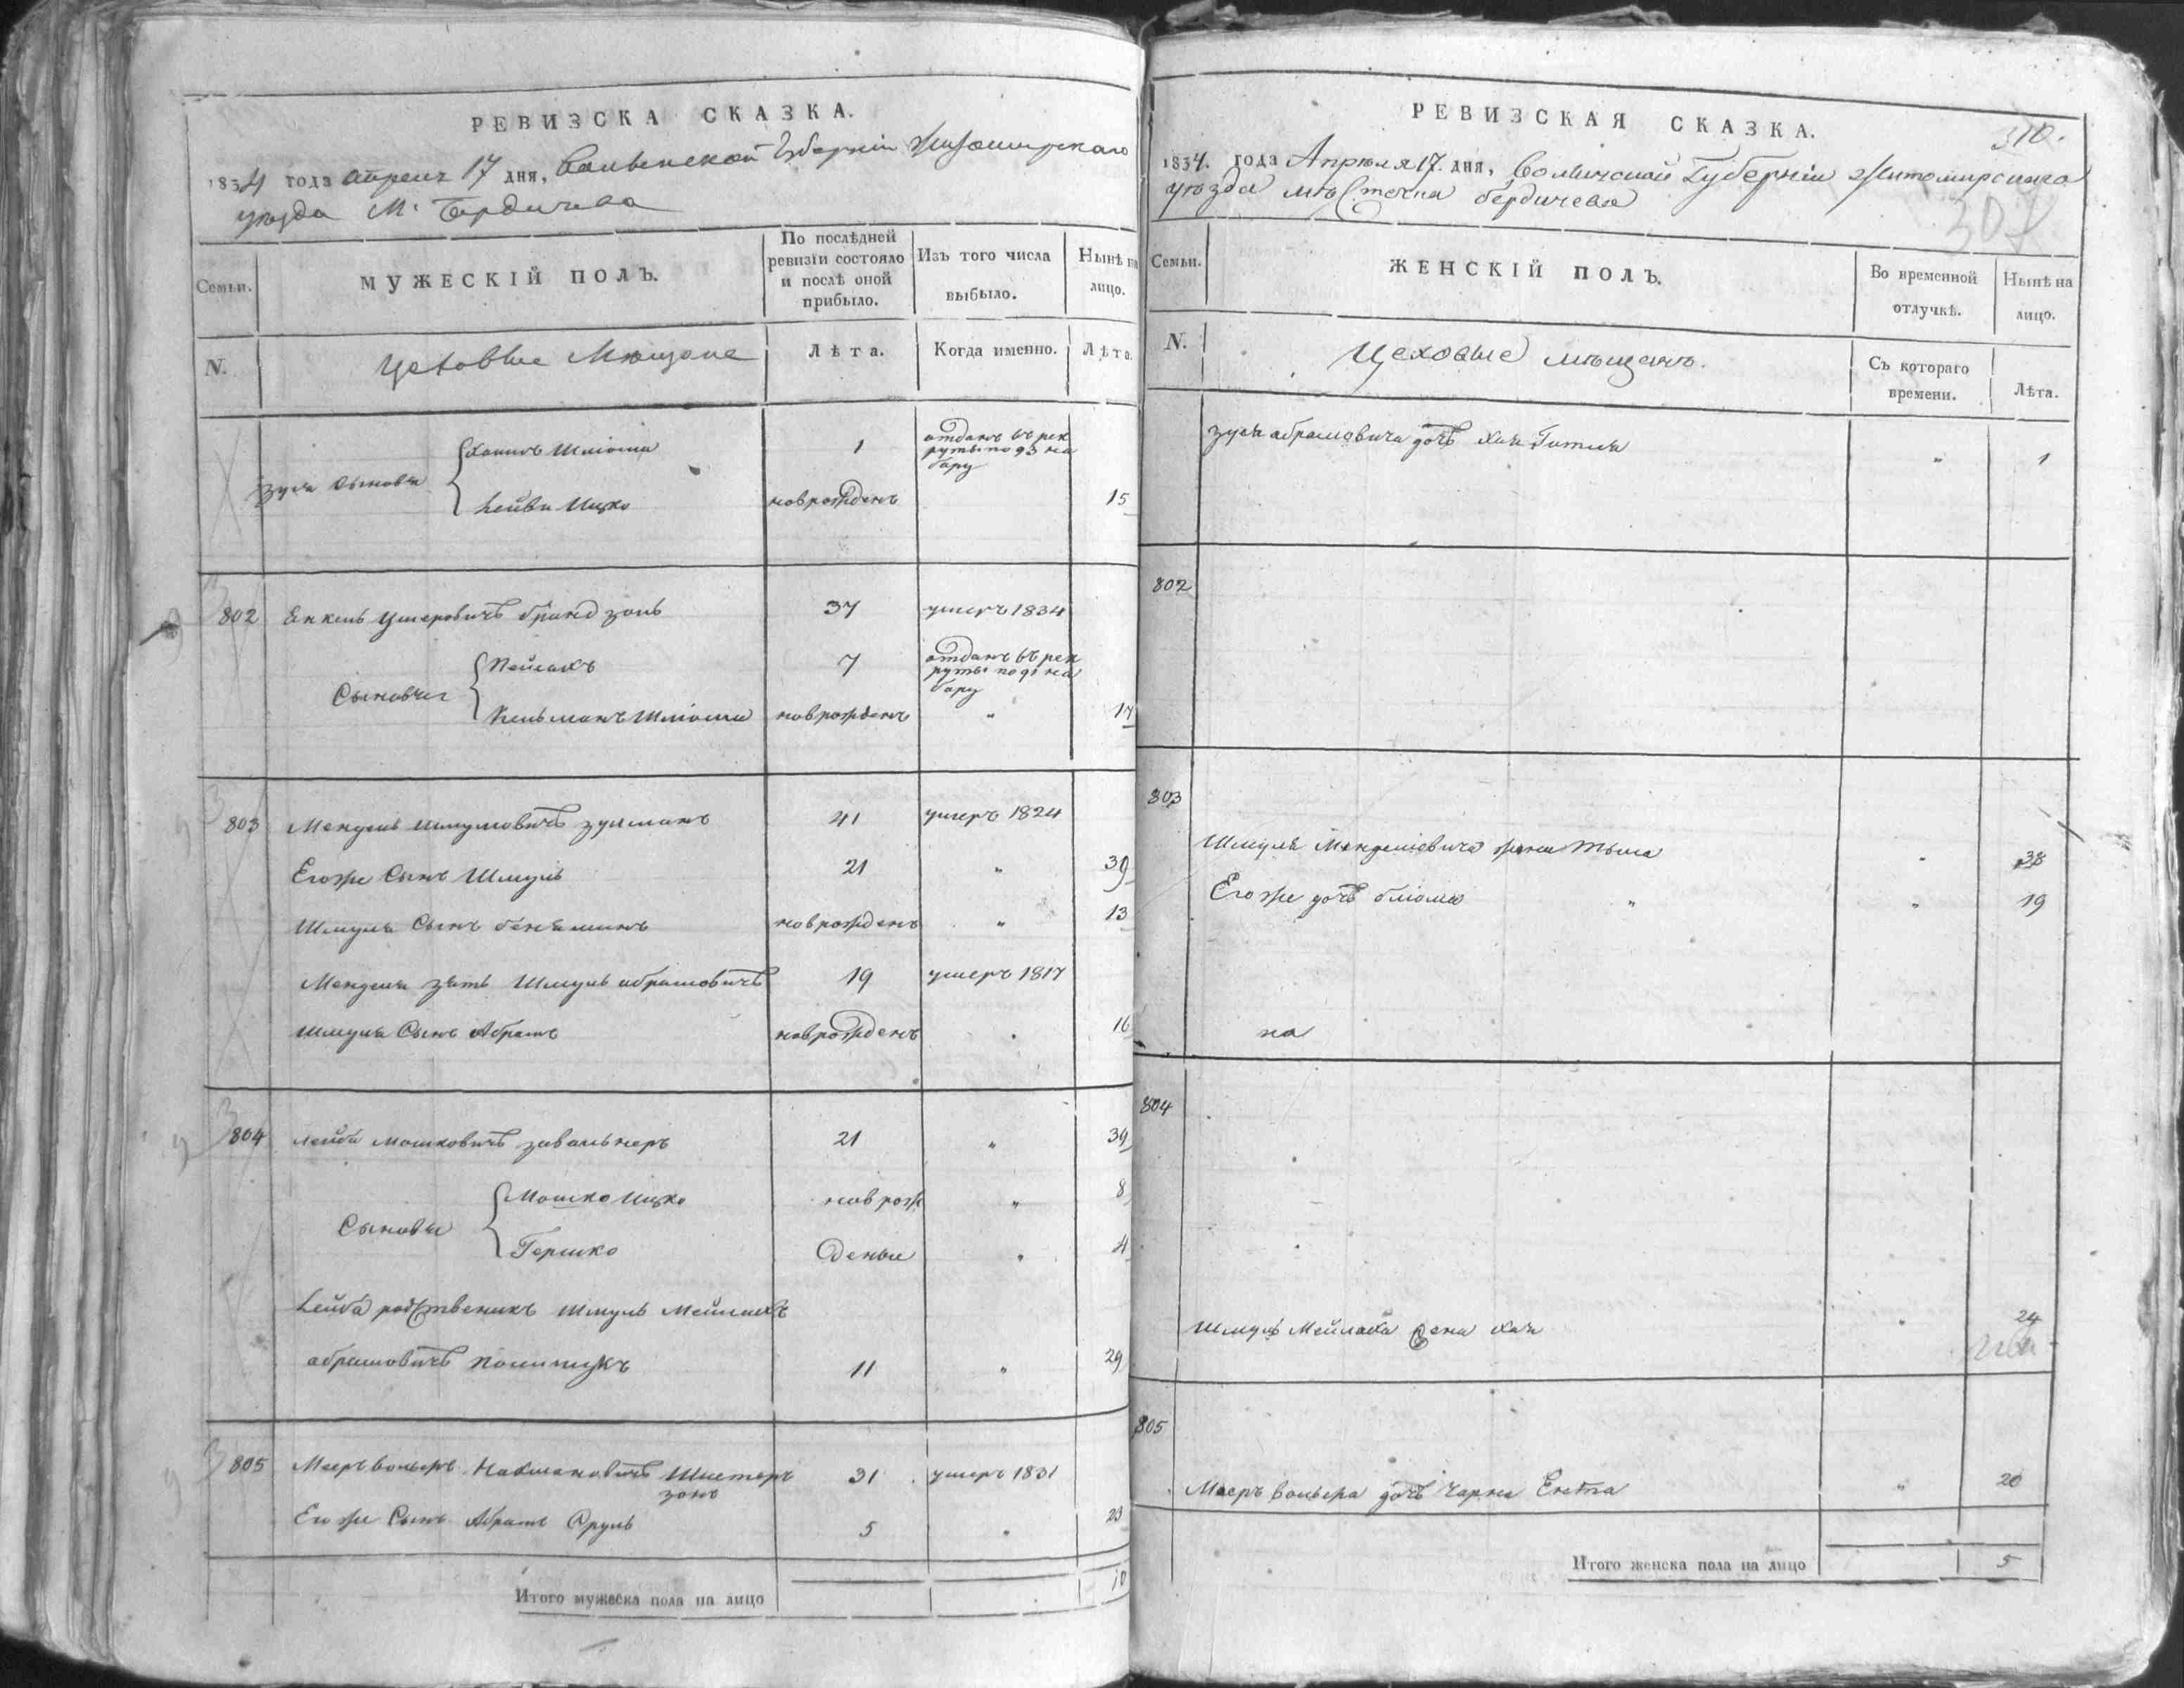 РЕВИЗСКА СКАЗКА.
1834 года апреля 17 дня, Волынской Губерніи Житомирскаго
уѣзда М. Бердичева
Семьи.
МУЖЕСКІЙ ПОЛЪ.
По послѣдней ревизіи состояло и послѣ оной прибыло.
Изъ того числа выбыло.
Нынѣ на лицо.
N.
Цеховые Мещане
Лѣта.
Когда именно.
Лѣта.
Зуся сыновья
1
отданъ въ рек
руты по 93 на
бору
Лейба Ицко новрожденъ 15
802 Енкель Ушеровичъ 37 умеръ 1834
Сыновья
Пейсахъ 7
отданъ въ рек
руты по 91 на
бору
Кельманъ Шліома новрожденъ " 17
803 Мендель Шмулевичъ Зусманъ 41 умеръ 1824
Егоже Сынъ Шмуль 21 " 39
Шмуля Сынъ Беняминъ новрожденъ " 13
Менделя зять Шмуль Абрамовичъ 19 умеръ 1817
Шмуля Сынъ Абрамъ новрожденъ 16
804 Лейба Мошковичъ Завальнеръ 21 " 39
Сыновья
Мошко Ицко новрож " 8
Гершко денные " 4
Лейба родственикъ Шмуль Мейлахъ
Абрамовичъ Полищукъ 11 " 29
805 Меер Вольфъ Нахмановичъ 31 умеръ 1831
зонъ
Егоже Сынъ Абрамъ Сруль 5 " 23
Итого мужеска пола на лицо 10
РЕВИЗСКАЯ СКАЗКА.
310.
1834. года Апрѣля 17. дня, Волынской Губерніи Житомирскаго
уѣзда мѣстечка Бердичева
307
Семьи.
ЖЕНСКІЙ ПОЛЪ.
Во временной отлучкѣ.
Нынѣ на лицо.
N.
Цеховые мѣщанъ.
Съ котораго времени.
Лѣта.
Зуся Абрамовича дочь Хая Гитля " 1
802
803
Шмуля Менделіовича жена " 38
Егоже дочь Бліома " " 19
на
804
Шмуль Мейлаха жена Хая " 24
805
Меер Вольфа дочь Чарна Ента " 20
Итого женска пола на лицо 5